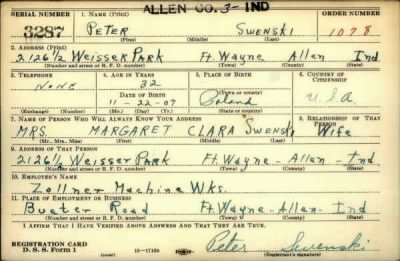 ALLEN CO. 3- IND
SERIAL NUMBER 1. NAME (Print) ORDER NUMBER
3287 PETER SWENSKI 1078
(First) (Middle) (Last)
2. ADDRESS (Print)
2126 1/2 Weisser Park Ft. Wayne Allen Ind
(Number and street or R. F. D. number) (Town) (County) (State)
3. TELEPHONE 4. AGE IN YEARS 5. PLACE OF BIRTH 6. COUNTRY OF CITIZENSHIP
NONE 32
(Town or county)
DATE OF BIRTH
11 - 22 - 07 Poland U.S.A
(Exchange) (Number) (Mo.) (Day) (Yr.) (State or country)
7. NAME OF PERSON WHO WILL ALWAYS KNOW YOUR ADDRESS 8. RELATIONSHIP OF THAT PERSON
MRS. MARGARET CLARA SWENSKI Wife
(Mr., Mrs., Miss) (First) (Middle) (Last)
9. ADDRESS OF THAT PERSON
2126 1/2 Weisser Park Ft. Wayne - Allen - Ind
(Number and street or R. F. D. number) (Town) (County) (State)
10. EMPLOYER'S NAME
Zollner Machine Wks.
11. PLACE OF EMPLOYMENT OR BUSINESS
Bueter Road Ft. Wayne - Allen - Ind
(Number and street or R. F. D. number) (Town) (County) (State)
I AFFIRM THAT I HAVE VERIFIED ABOVE ANSWERS AND THAT THEY ARE TRUE.
REGISTRATION CARD
D. S. S. Form 1 Peter Swenski
(Registrant's signature)